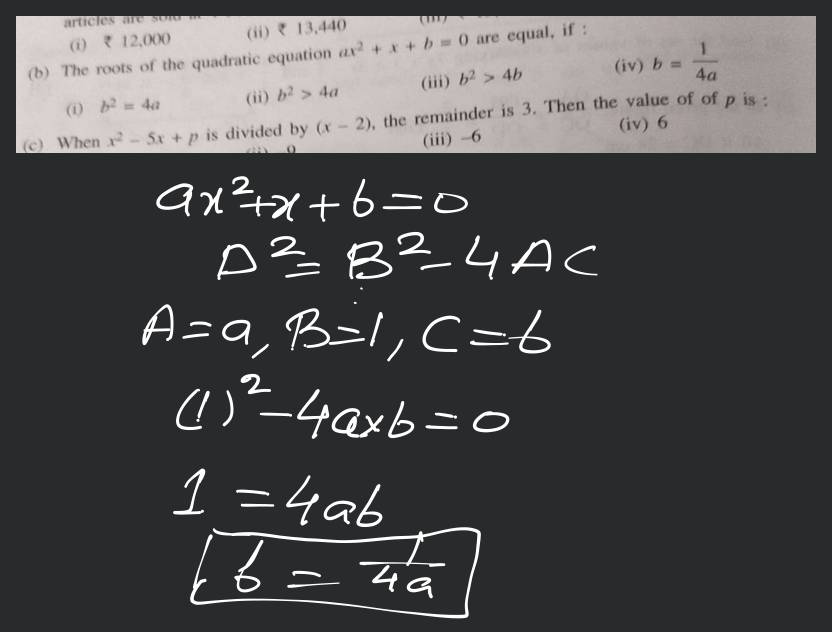 articles are sold
(i) ₹ 12,000 (ii) ₹ 13,440 (iii)
(b) The roots of the quadratic equation ax² + x + b = 0 are equal, if :
(i) b² = 4a (ii) b² > 4a (iii) b² > 4b (iv) b = 1/4a
(c) When x² – 5x + p is divided by (x – 2), the remainder is 3. Then the value of of p is :
(iii) –6 (iv) 6
ax²+x+b=0
D²= B²-4AC
A=a, B=1, C=b
(1)²-4axb=0
1 =4ab
b = 1/4a